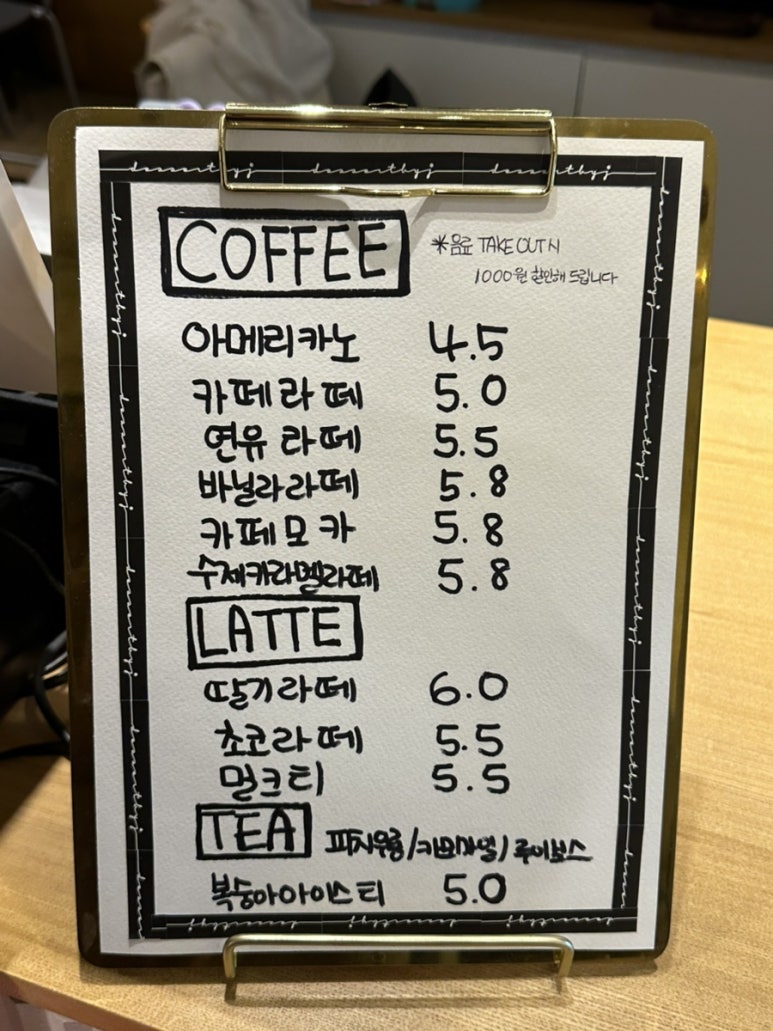 dessertbyj dessertbyj dessertbyj
COFFEE
*음료 TAKE OUT시
1000원 할인해 드립니다
아메리카노 4.5
카페라떼 5.0
연유라떼 5.5
바닐라라떼 5.8
카페모카 5.8
수제카라멜라떼 5.8
LATTE
딸기라떼 6.0
초코라떼 5.5
밀크티 5.5
TEA 피치우롱/카모마일/루이보스
복숭아아이스티 5.0